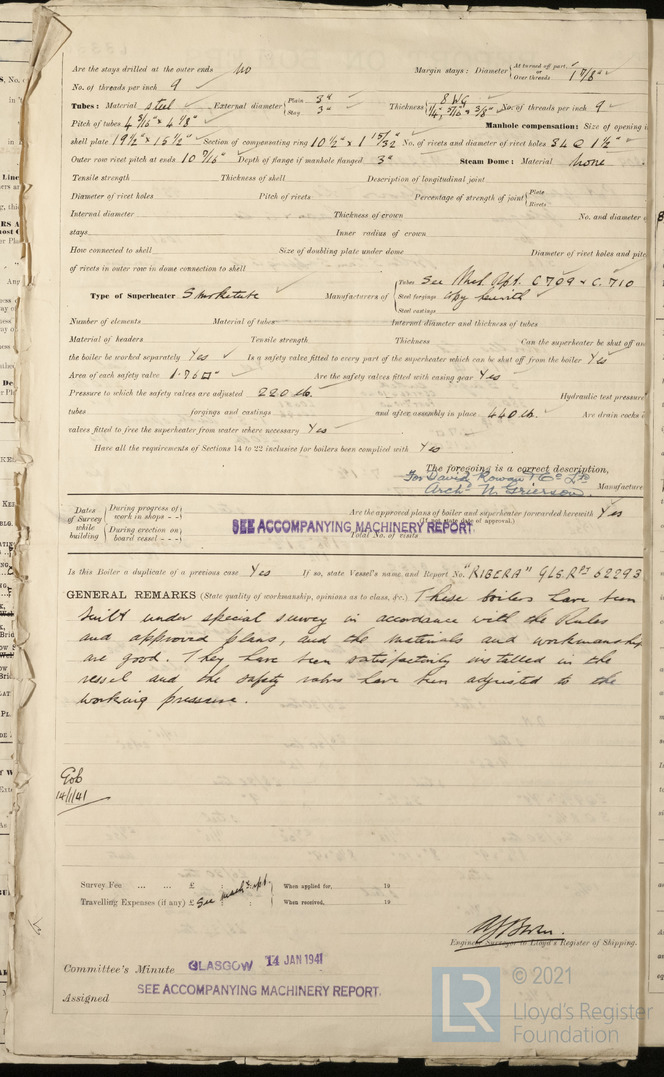 Are the stays drilled at the outer ends No Margin stays: Diameter { At turned off part, or Over threads 1 7/8"
No. of threads per inch 9
Tubes: Material steel External diameter { Plain 3" Stay 3" Thickness { 8 WG 1/4", 5/16" & 3/8" No. of threads per inch 9
Pitch of tubes 4 3/16" x 4 1/8" Manhole compensation: Size of opening i
shell plate 19 1/2" x 15 1/2" Section of compensating ring 10 1/2" x 1 15/32" No. of rivets and diameter of rivet holes 34 @ 1 1/2"
Outer row rivet pitch at ends 10 7/16" Depth of flange if manhole flanged 3" Steam Dome: Material None
Tensile strength Thickness of shell Description of longitudinal joint
Diameter of rivet holes Pitch of rivets Percentage of strength of joint { Plate Rivets
Internal diameter Thickness of crown No. and diameter o
stays Inner radius of crown
How connected to shell Size of doubling plate under dome Diameter of rivet holes and pitc
of rivets in outer row in dome connection to shell
Type of Superheater Smoketube Manufacturers of { Tubes See Rpt. C.709 & C.710
Steel forgings
Steel castings
Number of elements Material of tubes Internal diameter and thickness of tubes
Material of headers Tensile strength Thickness Can the superheater be shut off an
the boiler be worked separately Yes Is a safety valve fitted to every part of the superheater which can be shut off from the boiler Yes
Area of each safety valve 1.76 □" Are the safety valves fitted with easing gear Yes
Pressure to which the safety valves are adjusted 220 lb. Hydraulic test pressure
tubes forgings and castings and after assembly in place 440 lb. Are drain cocks o
valves fitted to free the superheater from water where necessary Yes
Have all the requirements of Sections 14 to 22 inclusive for boilers been complied with Yes
The foregoing is a correct description,
For David Rowan & Co. Ltd
Archd. W. Grierson. Manufacture
Dates of Survey while building { During progress of work in shops - - During erection on board vessel - - - Are the approved plans of boiler and superheater forwarded herewith Yes
(If not state date of approval.)
SEE ACCOMPANYING MACHINERY REPORT.
Total No. of visits
Is this Boiler a duplicate of a previous case Yes If so, state Vessel's name and Report No. "RIBERA" GLS. Rpt 62293
GENERAL REMARKS (State quality of workmanship, opinions as to class, &c.) These boilers have been
built under special survey in accordance with the Rules
and approved plans, and the materials and workmanship
are good. They have been satisfactorily installed in the
vessel and the safety valves have been adjusted to the
working pressure.
14/1/41
Survey Fee ... ... £ : : When applied for, 19
Travelling Expenses (if any) £ See mach. rpt. When received, 19
Engineer Surveyor to Lloyd's Register of Shipping.
Committee's Minute GLASGOW 14 JAN 1941
Assigned SEE ACCOMPANYING MACHINERY REPORT.
LR
© 2021
Lloyd's Register
Foundation